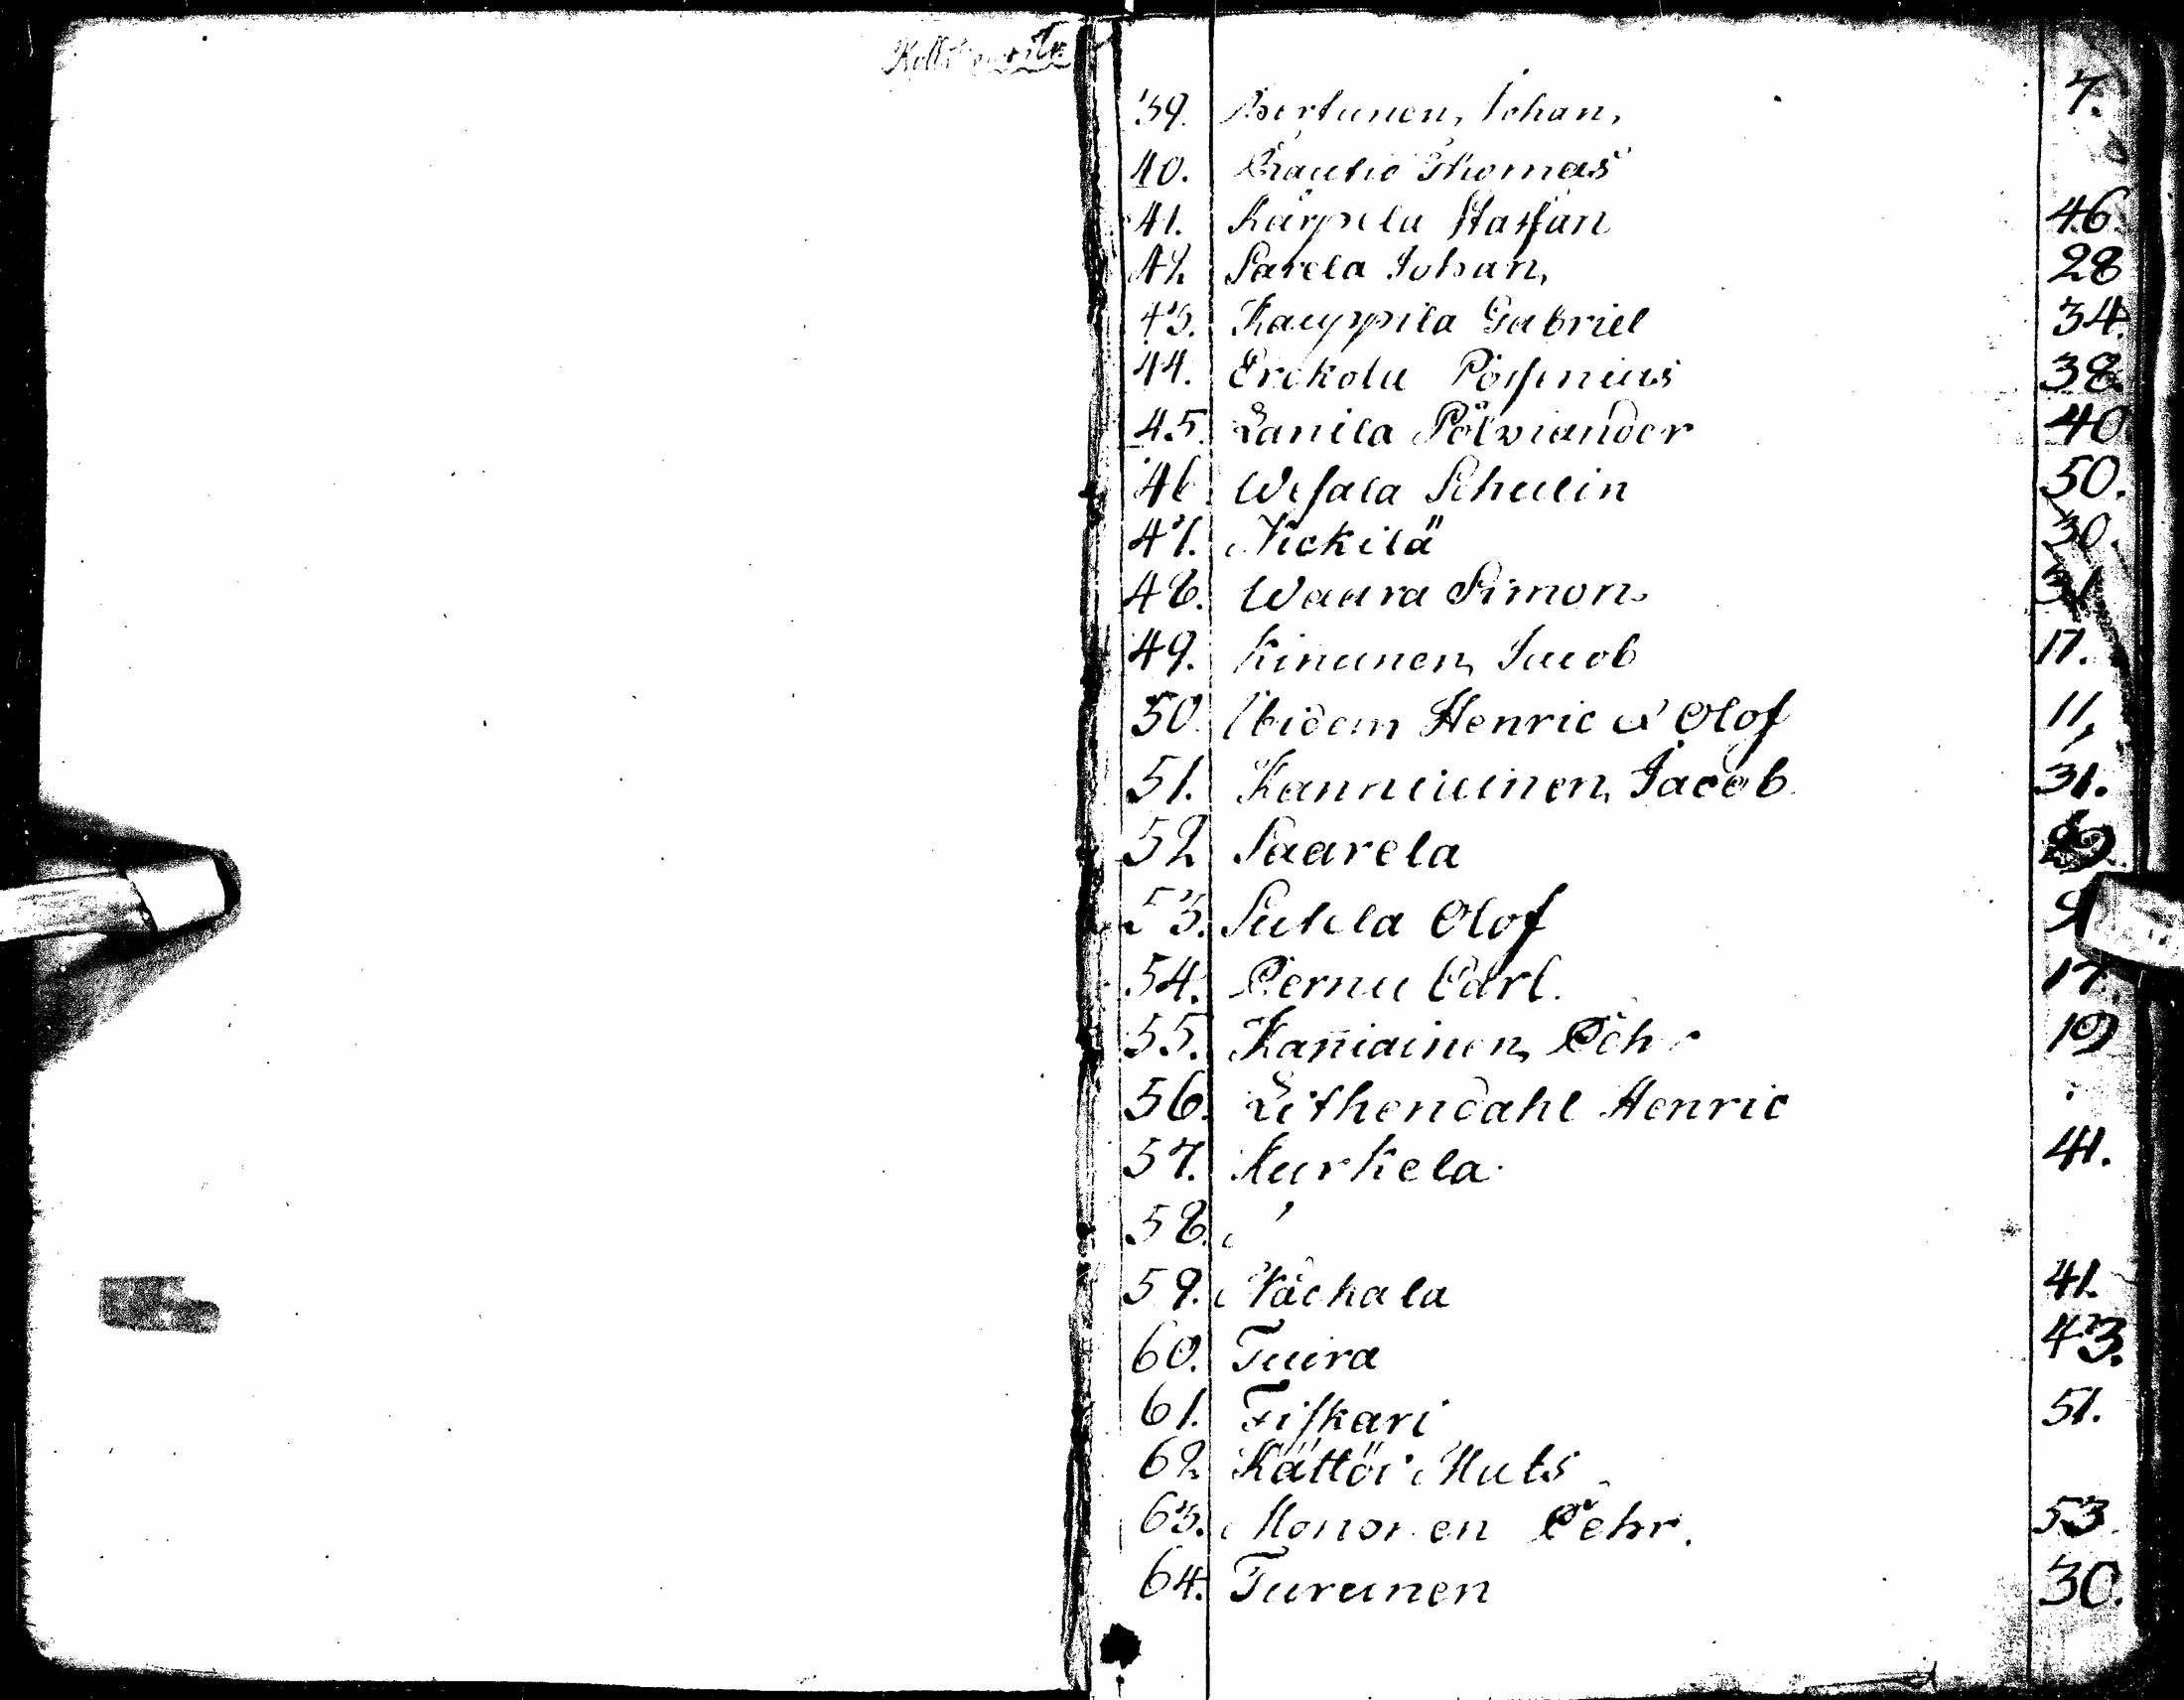 39. Pertunen, Johan, 7.
40. Rautio Thomas
41. Kärpela Staffan 46.
42 Sarela Johan, 28
43. Kauppila Gabriel 34.
44. Erckola Pössenius 38.
45. Lanila Pölviander 40
46. Wesala Schulin 50.
47. Nickilä 30.
48. Waara Simon 31
49. Kinunen, Jacob 17.
50. Ibidem Henric & Olof 11,
51. Kanniainen, Jacob 31.
52 Saarela
53. Sutela Olof 9
54. Pernu Carl. 17.
55. Kaniainen, Pehr 19
56. Lithendahl Henric
57. Kurkela 41.
58.
59. Nächala 41
60. Tuira 43.
61. Fiskari 51.
62. Kättöi Mats
63. Mononen Pehr. 53
64. Turunen 30.